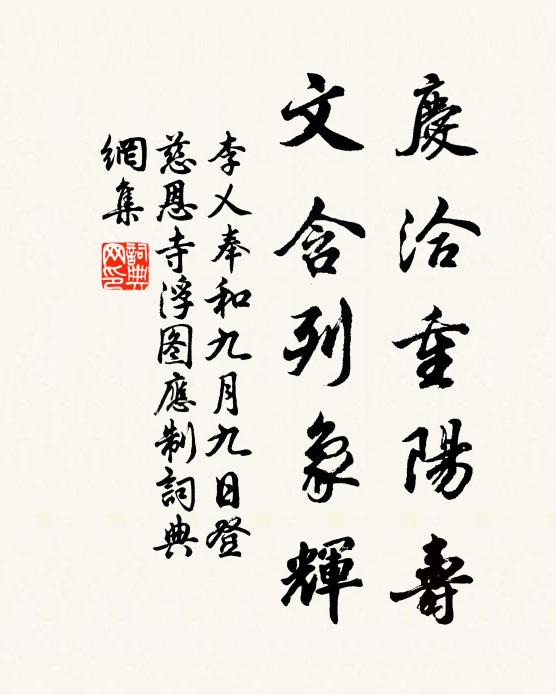 慶洽重陽壽
文含列象輝
李乂奉和九月九日登
慈恩寺浮图應制詞典
網集
詞典網印